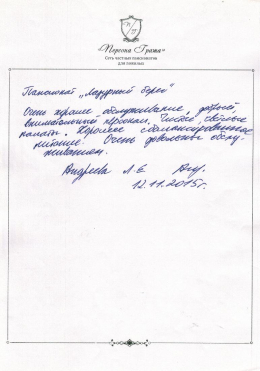 "Персона Грата"
Сеть частных пансионатов
для пожилых
Пансионат „Лазурный берег"
Очень хорошее обслуживание, добрый,
внимательный персонал. Чистые, светлые
палаты. Хорошее сбалансированное
питание. Очень довольны обслу-
живанием.
Андреева Л.Е
12.11.2015г.